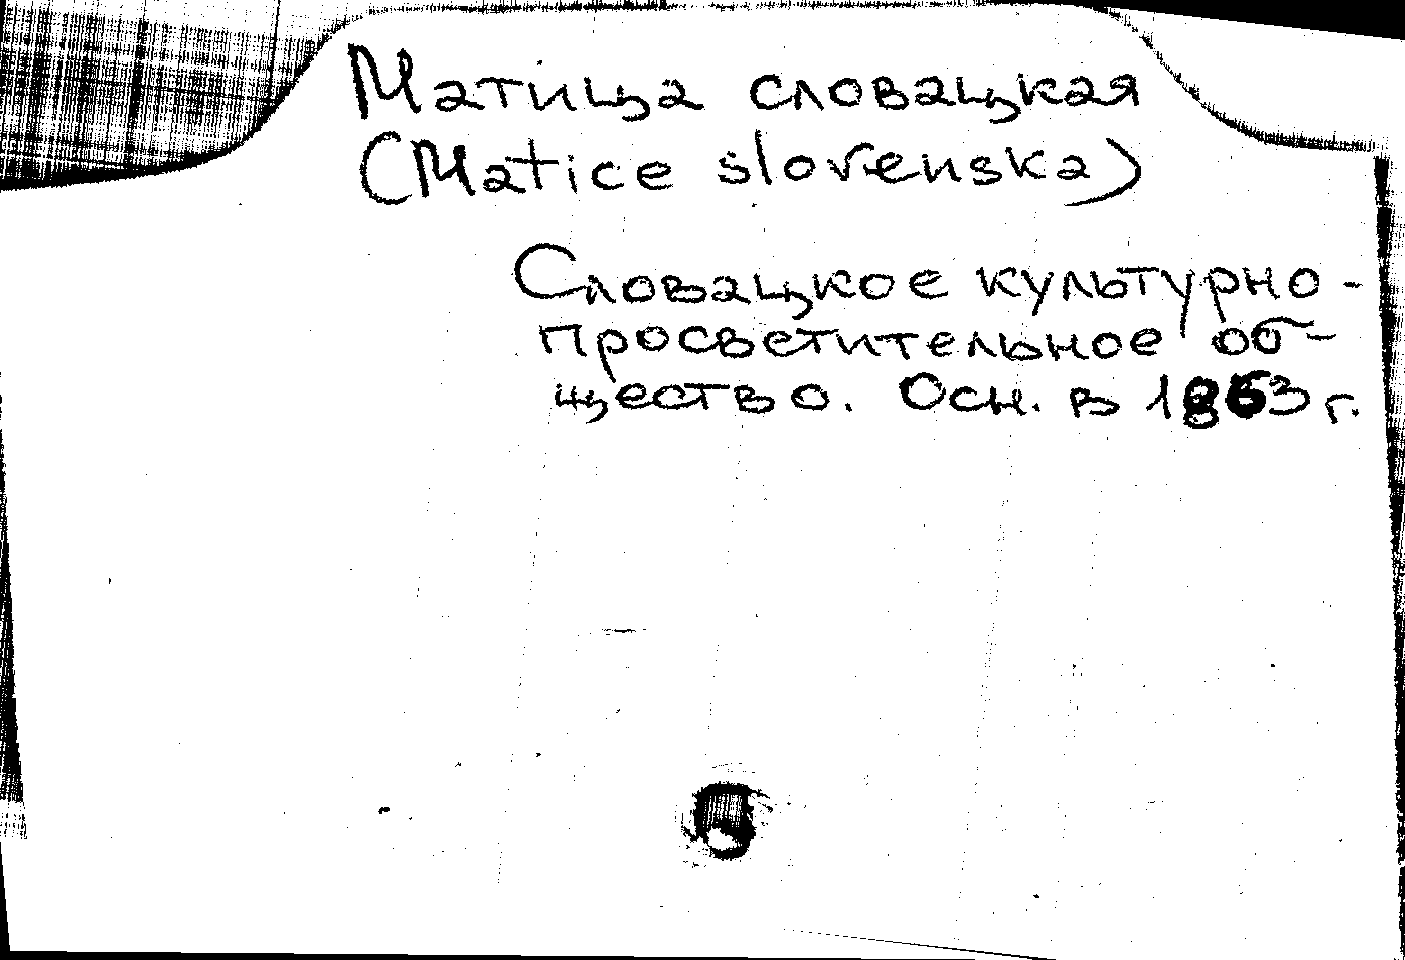 Матица словацкая
(Matice slovenska)
Словацкое культурно-
просветительное об-
щество. Осн. в 1863 г.